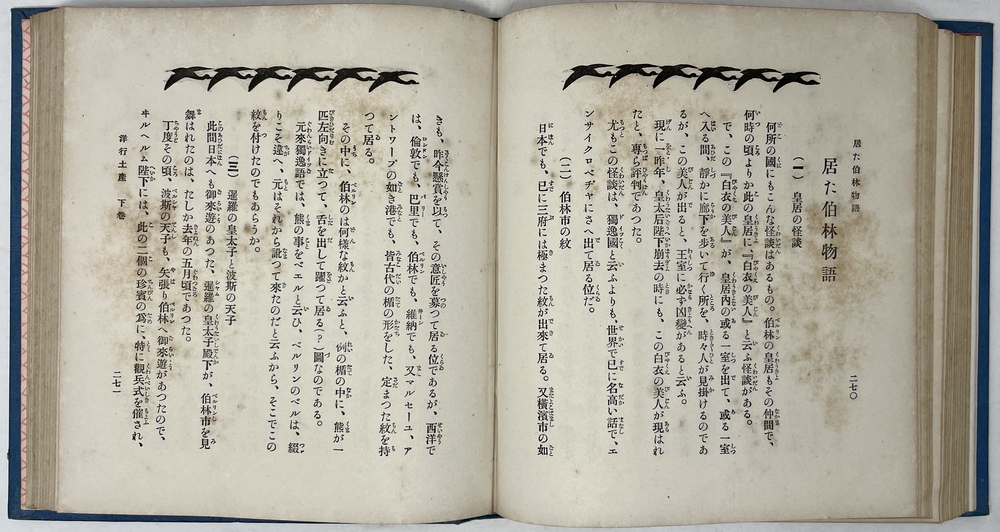 居た伯林物語
二七〇
居た伯林物語
(一) 皇居の怪談
何所の國にもこんな怪談はあるもの。伯林の皇居もその仲間で、
何時の頃よりか此の皇居に、『白衣の美人』と云ふ怪談がある。
で、この『白衣の美人』が、皇居内の或る一室を出て、或る一室
へ入る間、靜かに廊下を歩いて行く所を、時々人が見掛けるのであ
るが、この美人が出ると、王室に必ず凶變があると云ふ。
現に一昨年、皇太后陛下崩去の時にも、この白衣の美人が現はれ
たと、專ら評判であつた。
尤もこの怪談は、獨逸國と云ふよりも、世界で已に名高い話で、エ
ンサイクロペヂヤにさへ出て居る位だ。
(二) 伯林市の紋
日本でも、已に三府には極まつた紋が出來て居る。又横濱市の如
きも、昨今懸賞を以て、その意匠を募つて居る位であるが、西洋で
は、倫敦でも、巴里でも、伯林でも、維納でも、又マルセーユ、ア
ントワープの如き港でも、皆古代の楯の形をした、定まつた紋を持
つて居る。
その中に、伯林のは何樣な紋かと云ふと、例の楯の中に、熊が一
匹左向きに立つて、舌を出して闘つて居る(?)圖なのである。
元來獨逸語では、熊の事をベエルと云ひ、ベルリンのベルは、綴
りこそ違へ、元はそれから訛つて來たのだと云ふから、そこでこの
紋を付けたのでもあらうか。
(三) 暹羅の皇太子と波斯の天子
此間日本へも御來遊のあつた、暹羅の皇太子殿下が、伯林市を見
舞はれたのは、たしか去年の五月頃であつた。
丁度その頃、波斯の天子も、矢張り伯林へ御來遊があつたので、
ヰルヘルム陛下には、此の二個の珍賓の爲に、特に觀兵式を催され、
洋行土産 下卷
二七一